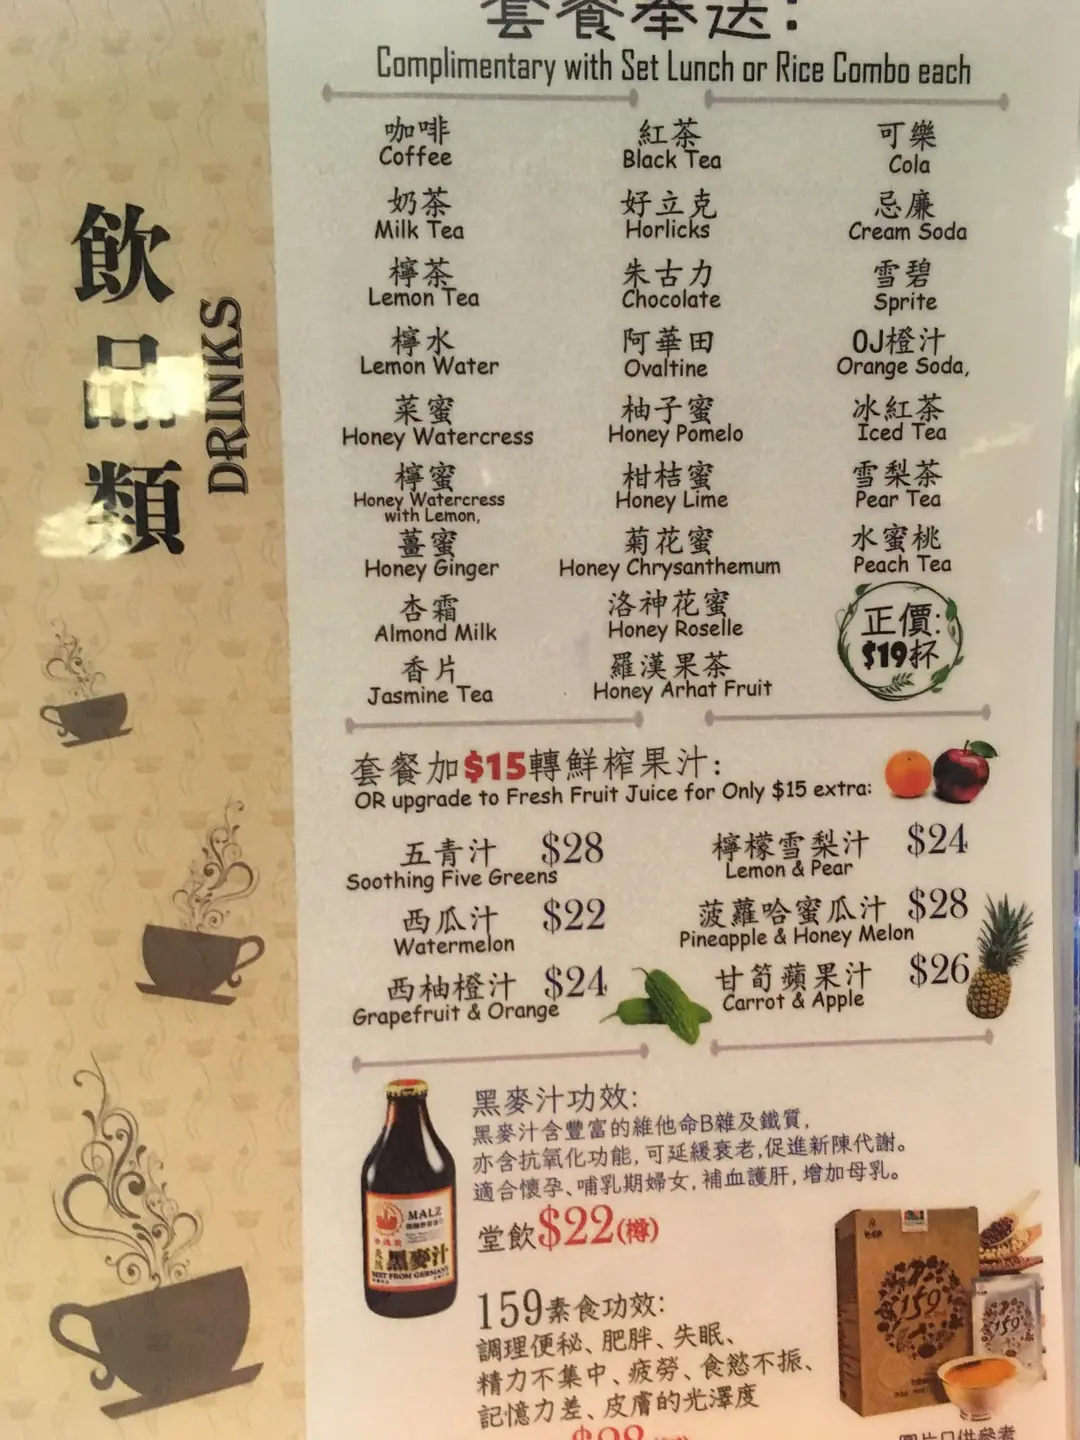 套餐奉送:
Complimentary with Set Lunch or Rice Combo each
飲品類
DRINKS
咖啡 紅茶 可樂
Coffee Black Tea Cola
奶茶 好立克 忌廉
Milk Tea Horlicks Cream Soda
檸茶 朱古力 雪碧
Lemon Tea Chocolate Sprite
檸水 阿華田 OJ橙汁
Lemon Water Ovaltine Orange Soda,
菜蜜 柚子蜜 冰紅茶
Honey Watercress Honey Pomelo Iced Tea
檸蜜 柑桔蜜 雪梨茶
Honey Watercress Honey Lime Pear Tea
with Lemon,
薑蜜 菊花蜜 水蜜桃
Honey Ginger Honey Chrysanthemum Peach Tea
杏霜 洛神花蜜 正價:
Almond Milk Honey Roselle $19杯
香片 羅漢果茶
Jasmine Tea Honey Arhat Fruit
套餐加$15轉鮮榨果汁:
OR upgrade to Fresh Fruit Juice for Only $15 extra:
五青汁 $28 檸檬雪梨汁 $24
Soothing Five Greens Lemon & Pear
西瓜汁 $22 菠蘿哈蜜瓜汁 $28
Watermelon Pineapple & Honey Melon
西柚橙汁 $24 甘筍蘋果汁 $26
Grapefruit & Orange Carrot & Apple
黑麥汁功效:
黑麥汁含豐富的維他命B雜及鐵質,
亦含抗氧化功能,可延緩衰老,促進新陳代謝。
適合懷孕、哺乳期婦女,補血護肝,增加母乳。
堂飲$22(樽)
MALZ
黑麥汁
BEST FROM GERMANY
159素食功效:
調理便秘、肥胖、失眠、
精力不集中、疲勞、食慾不振、
記憶力差、皮膚的光澤度
159
159
$28
圖片只供參考